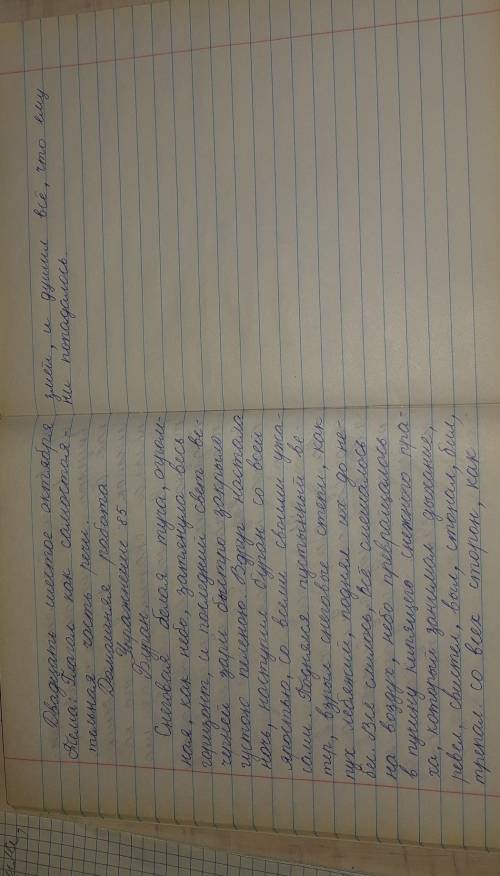 Двадцать шестое октября
Тема: Глагол как самостоя-
тельная часть речи.
Домашняя работа
Упражнение 85
Буран
Снеговая белая туча, огром-
ная, как небо, затянула весь
горизонт и последний свет ве-
черней зари быстро закрыло
густою пеленою. Вдруг настала
ночь, наступил буран со всей
яростью, со всеми своими ужа-
сами. Поднялся пустынный ве-
тер, взрыл снеговые степи, как
пух лебяжий, поднял их до не-
бес. Всё слилось, всё смешалось
на воздух, небо превращалось
в пучину кипящего снежного пра-
ха, который занимал дыхание,
ревел, свистел, выл, стонал, бил,
трепал со всех сторон, как
змей, и душил всё, что ему
ни попадалось.